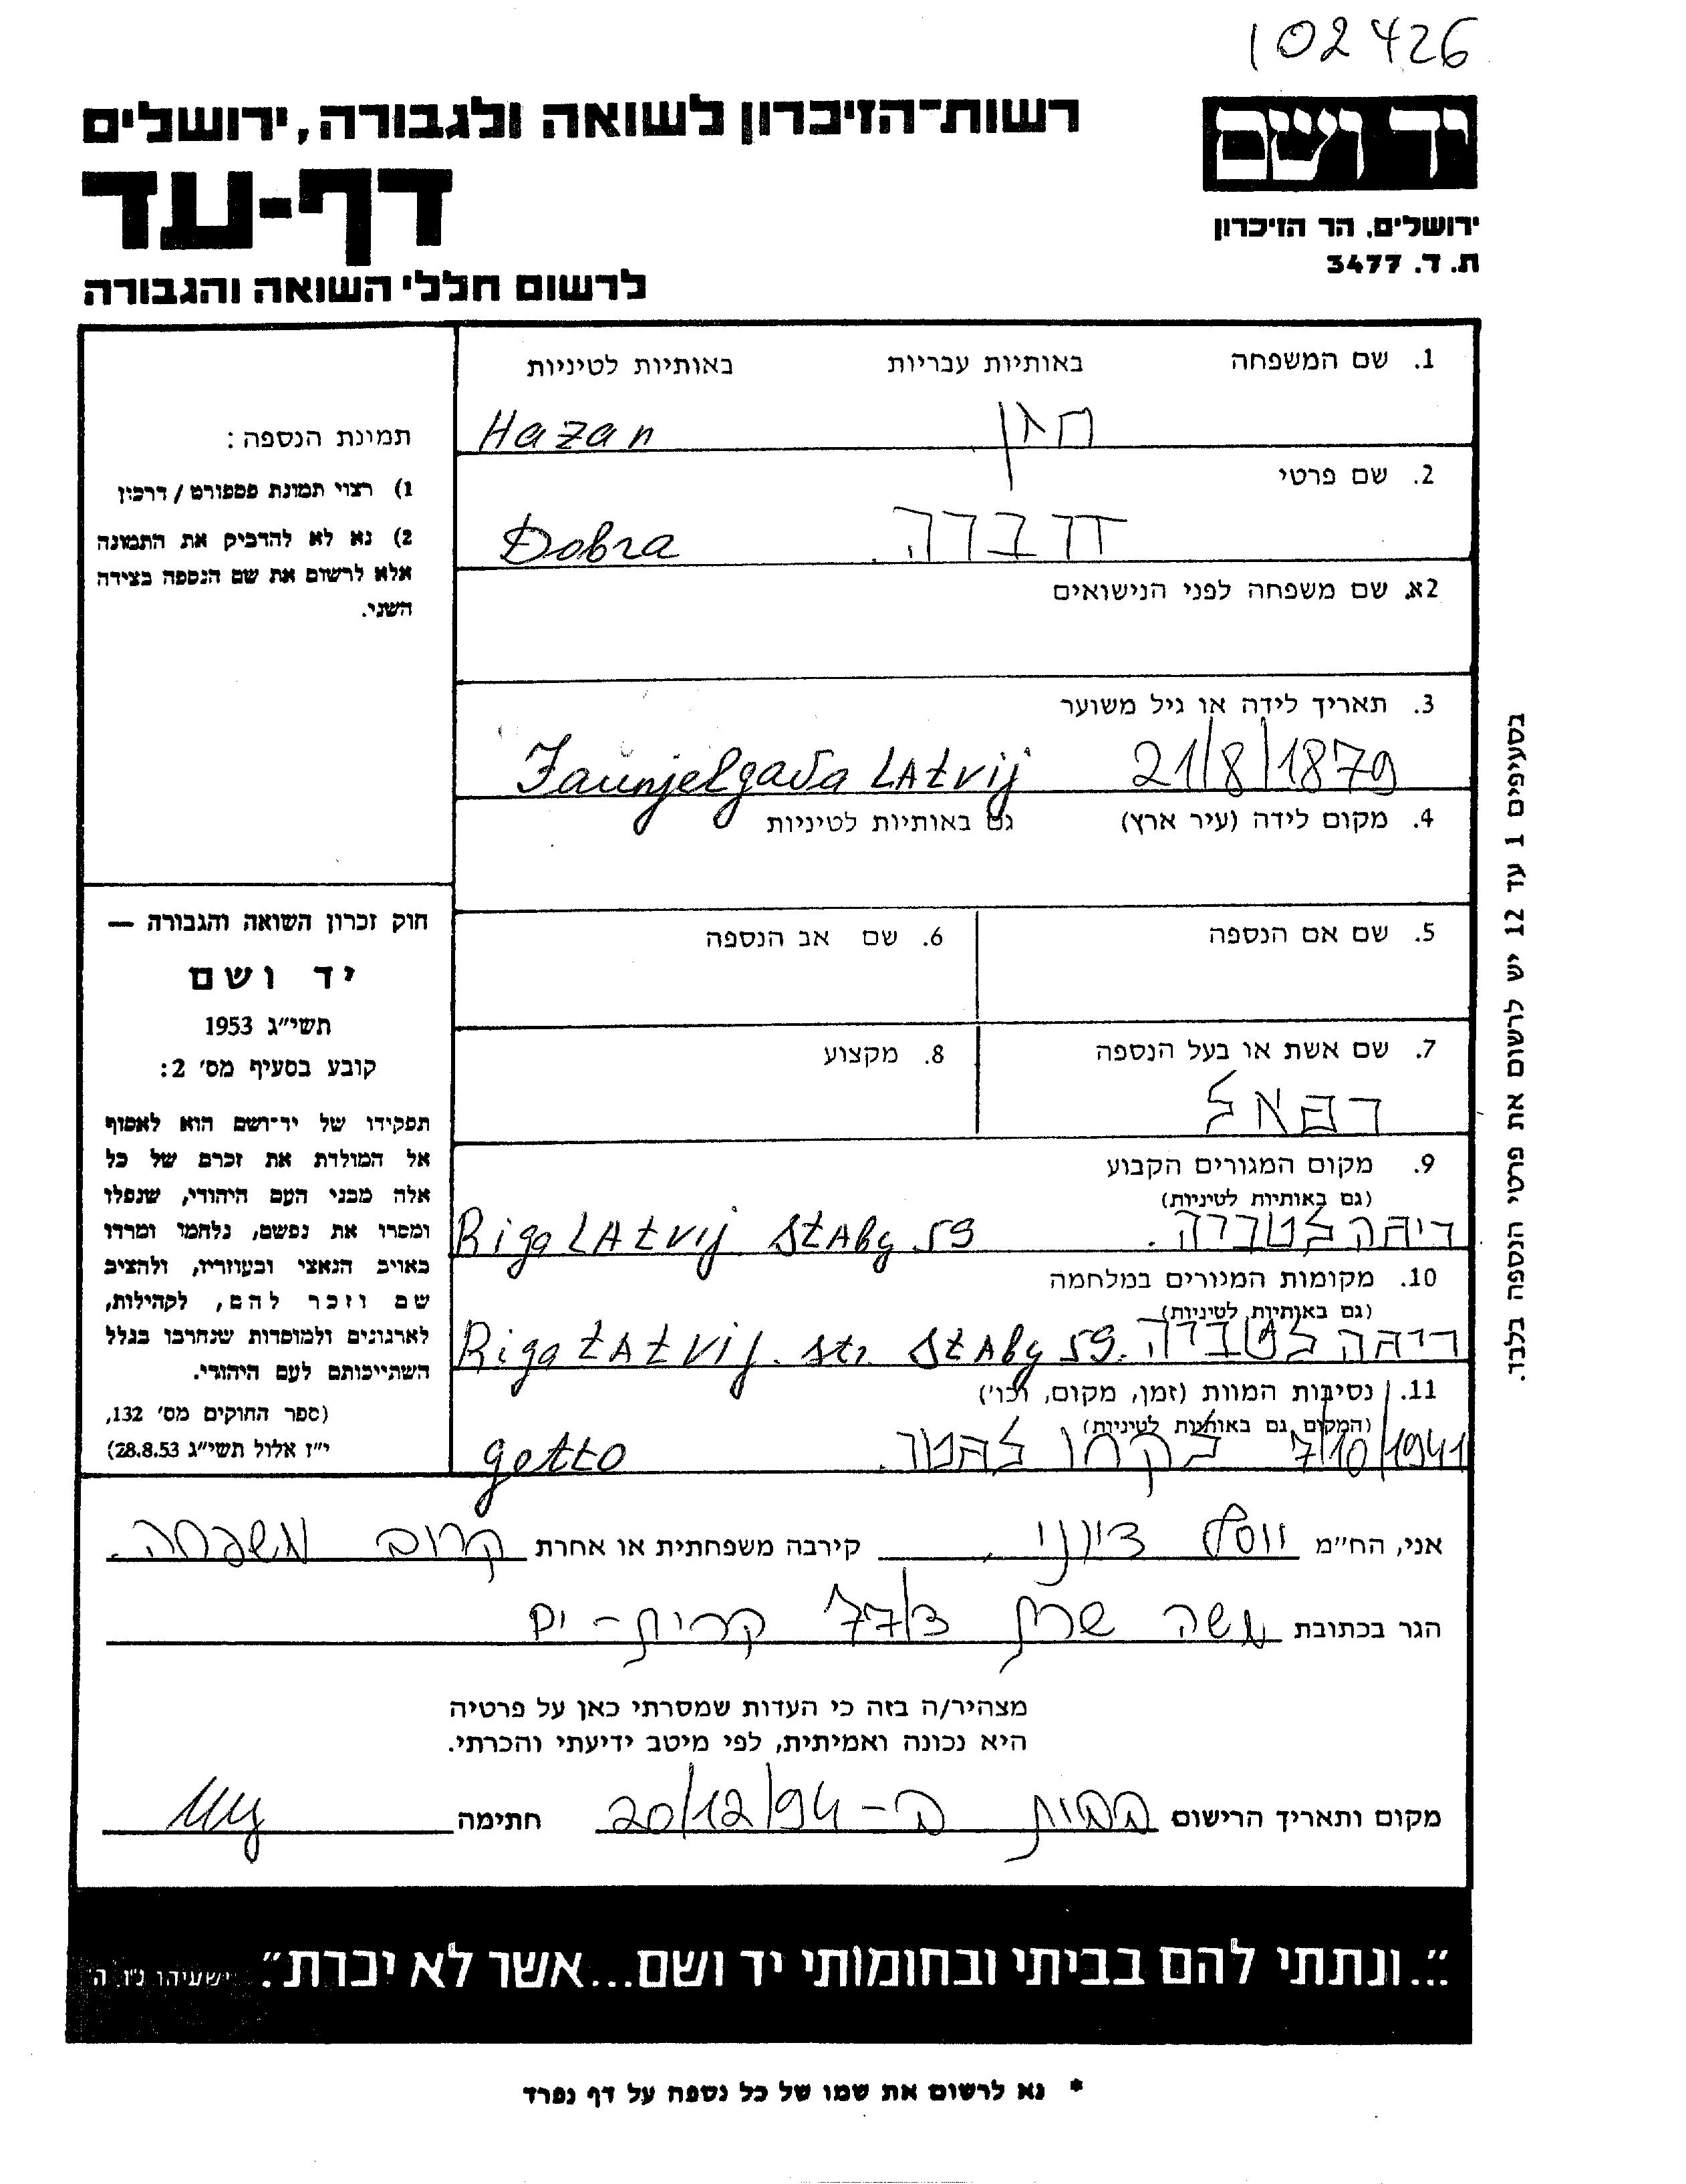 102426
יד ושם
רשות-הזיכרון לשואה ולגבורה, ירושלים
דף-עד
ירושלים, הר הזיכרון
ת. ד. 3477
לרשום חללי השואה והגבורה
1. שם המשפחה באותיות עבריות באותיות לטיניות
חזן Hazan
2. שם פרטי
דברה. Dobra
2א. שם משפחה לפני הנישואים
3. תאריך לידה או גיל משוער
21/8/1879 Jaunjelgava LAtvij
4. מקום לידה (עיר ארץ) גם באותיות לטיניות
5. שם אם הנספה
6. שם אב הנספה
7. שם אשת או בעל הנספה
רפאל
8. מקצוע
9. מקום המגורים הקבוע
(גם באותיות לטיניות)
ריגה לטביה. Riga LAtvij StAby 59
10. מקומות המגורים במלחמה
(גם באותיות לטיניות)
ריגה לטביה. Riga LAtvij. str. StAby 59.
11. נסיבות המוות (זמן, מקום, וכו')
(המקום גם באותיות לטיניות)
7/10/1941 לקחו לגטו. getto
תמונת הנספה:
1) רצוי תמונת פספורט / דרכון
2) נא לא להדביק את התמונה
אלא לרשום את שם הנספה בצידה
השני.
חוק זכרון השואה והגבורה —
יד ושם
תשי"ג 1953
קובע בסעיף מס' 2:
תפקידו של יד-ושם הוא לאסוף
אל המולדת את זכרם של כל
אלה מבני העם היהודי, שנפלו
ומסרו את נפשם, נלחמו ומרדו
באויב הנאצי ובעוזריו, ולהציב
שם וזכר להם, לקהילות,
לארגונים ולמוסדות שנחרבו בגלל
השתייכותם לעם היהודי.
(ספר החוקים מס' 132,
י"ז אלול תשי"ג 28.8.53)
בסעיפים 1 עד 12 יש לרשום את פרטי הנספה בלבד.
אני, הח"מ יוסף ציוני, קירבה משפחתית או אחרת קרוב משפחה.
הגר בכתובת משה שרת 77/3 קרית-ים
מצהיר/ה בזה כי העדות שמסרתי כאן על פרטיה
היא נכונה ואמיתית, לפי מיטב ידיעתי והכרתי.
מקום ותאריך הרישום בבית ב-20/12/94 חתימה
"...ונתתי להם בביתי ובחומותי יד ושם...אשר לא יכרת". ישעיהו נ"ו, ה'
* נא לרשום את שמו של כל נספה על דף נפרד